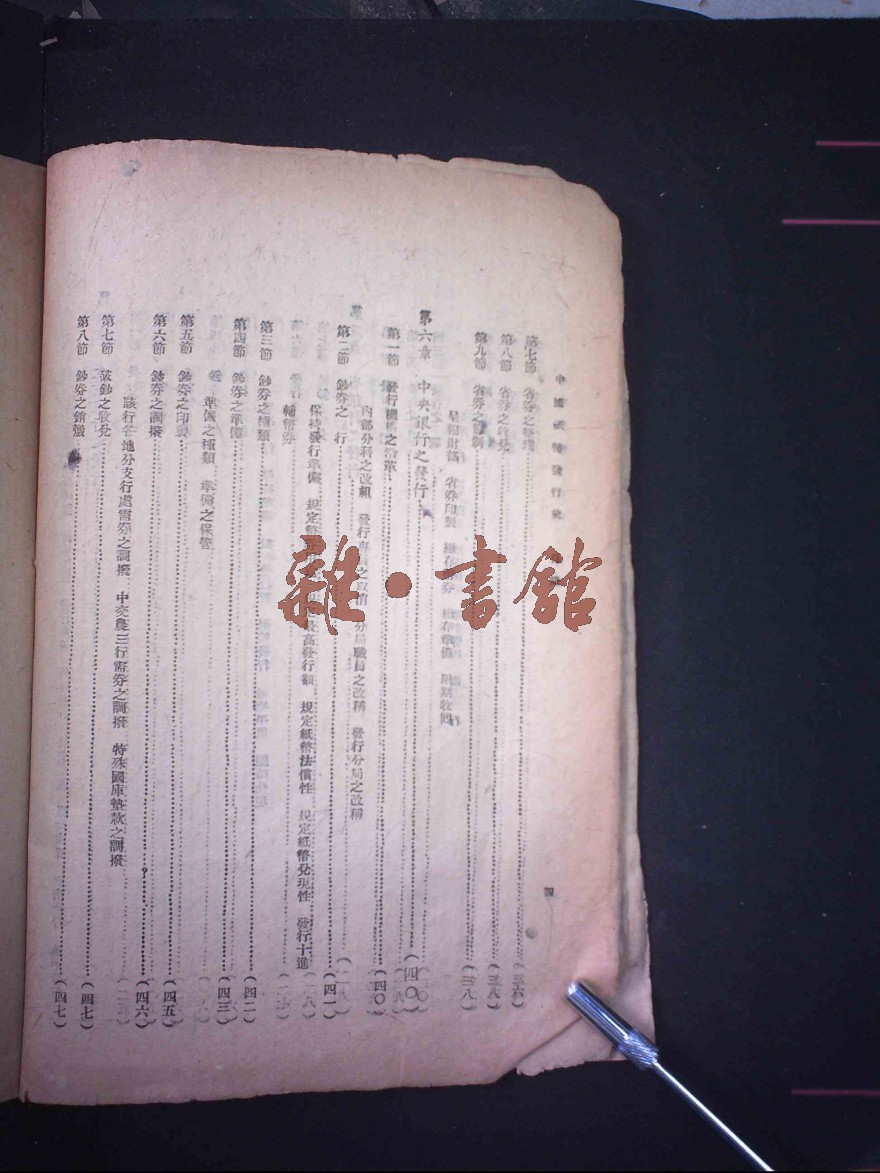 中國 發行史
四
第七節 省券之 (三六)
第八節 省券之收兌 (三八)
第九節 省券之 (三八)
呈報財部 省券印製 限期收回
第六章 中央銀行之發行 (四〇)
第一節 發行機構之沿革 (四〇)
內部分科之改組 發行 之取消 分局職員之改稱 發行分局之改稱
第二節 鈔券之 行 (四一)
保持發行準備 規定 最高發行額 規定紙幣法償性 規定紙幣兌現性 發行十進
輔幣券
第三節 鈔券之種類 (四二)
第四節 鈔券之準備 (四三)
準備之種類 準備之保管
第五節 鈔券之印製 (四五)
第六節 鈔券之調撥 (四六)
該行各地分支行處需券之調撥 中交農三行需券之調撥 特殊國庫墊款之調撥
第七節 破鈔之收兌 (四七)
第八節 鈔券之銷燬 (四七)
雜·書館